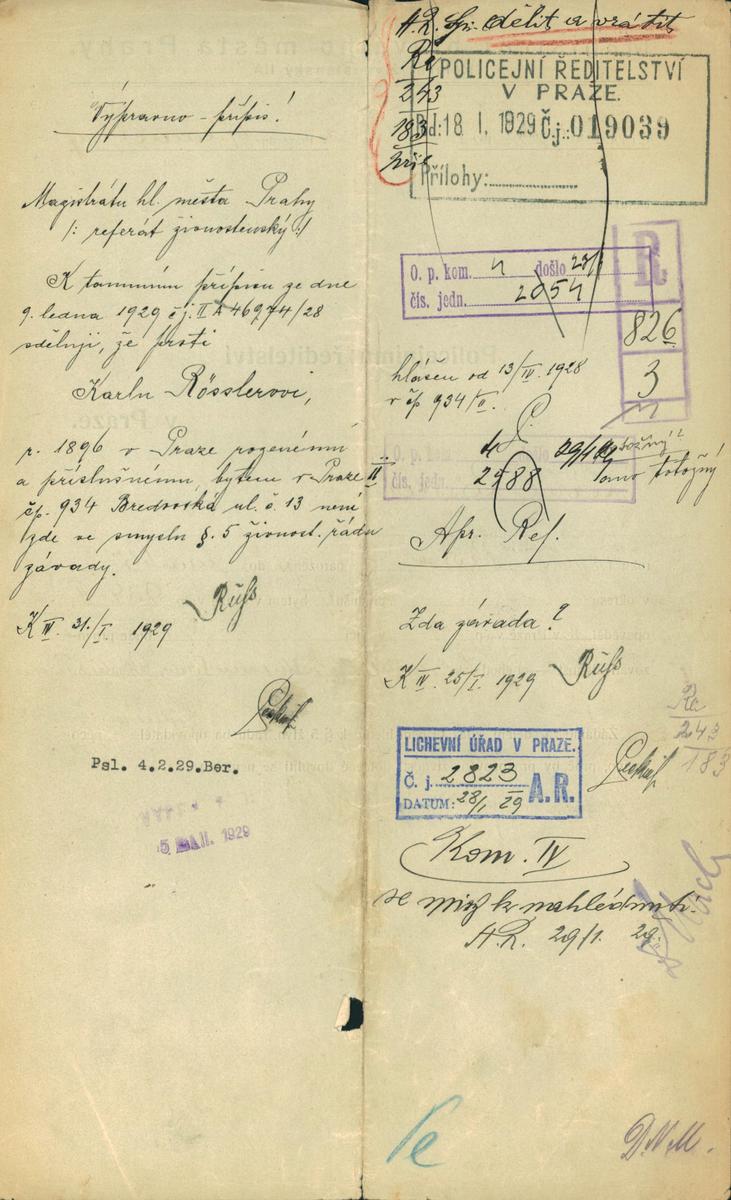 Výpravno - přípis!
Magistrátu hl. města Prahy
/: referát živnostenský :/
K tamnímu přípisu ze dne
9. ledna 1929 čj. II A 46974/28
sděluji, že proti
Karlu Rösslerovi,
r. 1896 v Praze rozenému
a příslušnému, bytem v Praze II
čp. 934 Bredovská ul. č. 13 není
zde ve smyslu §. 5 živnost. řádu
závady.
K IV. 31./I. 1929
Psl. 4.2.29.Ber.
1929
A.R. dělit a vrátit
Re
243
183
POLICEJNÍ ŘEDITELSTVÍ
V PRAZE.
18 I. 1929 Č.j.: 019039
Přílohy:
O. p. kom. došlo
čís. jedn. 2054
R
826
3
hlášen od 13/IV. 1928
v čp 934/II.
O. p.
čís. jedn. 2988
totožný
Apr. Ref.
Zda závada?
K IV. 25/I. 1929
Re
243
183
LICHEVNÍ ÚŘAD V PRAZE.
Č. j. 2823
DATUM: 28/1 29 A.R.
Kom. IV
k nahlédnutí.
A.R. 29/1. 29.